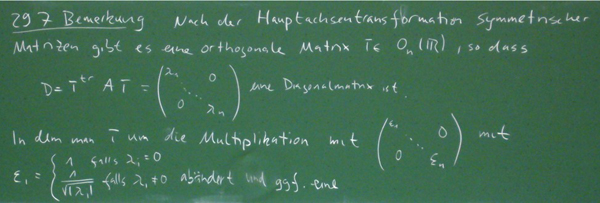 29.7 Bemerkung Nach der Hauptachsentransformation symmetrischer
Matrizen gibt es eine orthogonale Matrix T ∈ Oₙ(ℝ), so dass
D = Tᵗʳ A T = (λ₁ 0 ⋱ 0 λₙ) eine Diagonalmatrix ist.
In dem man T um die Multiplikation mit (ε₁ 0 ⋱ 0 εₙ) mit
εᵢ = { 1 falls λᵢ = 0
1/√|λᵢ| falls λᵢ ≠ 0 abändert und ggf. eine